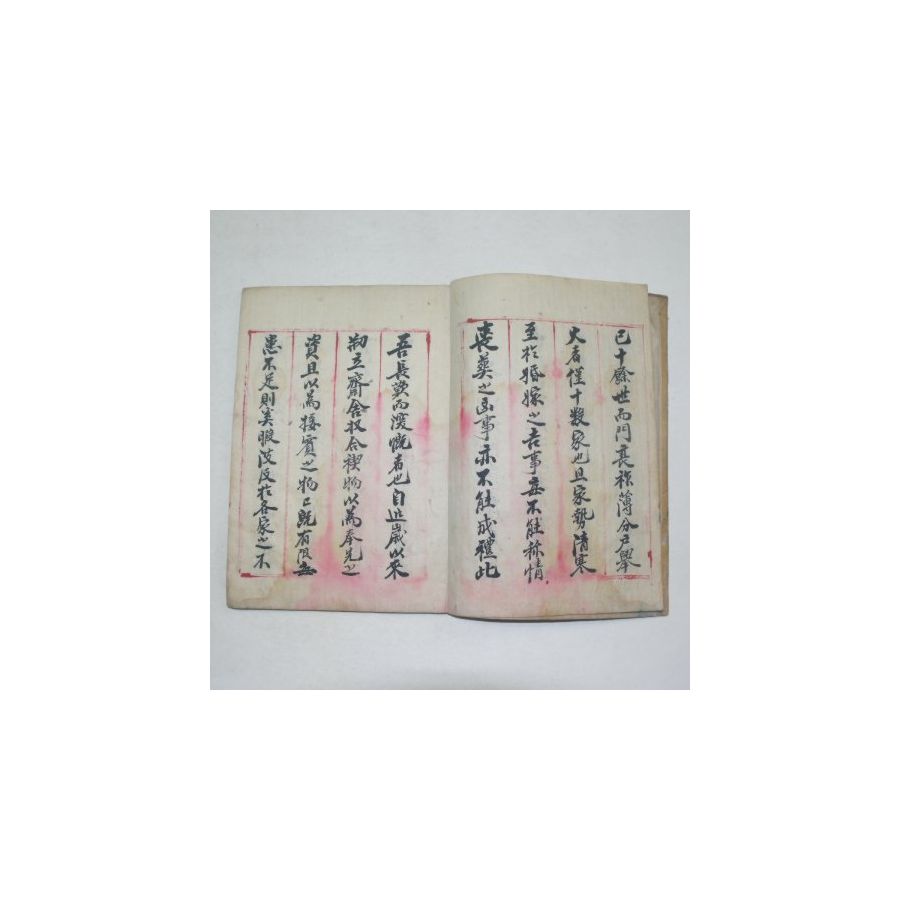 已十餘世而門衰祚薄分戶擧
火者僅十數家也且家勢清寒
至於婚嫁之吉事每不能称情
喪葬之凶事亦不能成禮此
吾長歎而深慨者也自近歲以來
刱立齋舍收合稧物以爲奉先之
資且以爲接賓之物已既有限
患不足則奚暇波及於各家之不